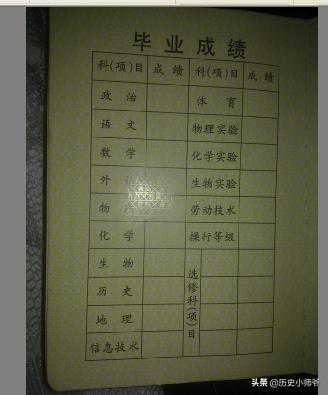 毕业成绩
科(项)目 成绩 科(项)目 成绩
政治 体育
语文 物理实验
数学 化学实验
外 生物实验
物 劳动技术
化学 操行等级
生物
历史 选修科(项)目
地理
信息技术
头条 @历史小师爷